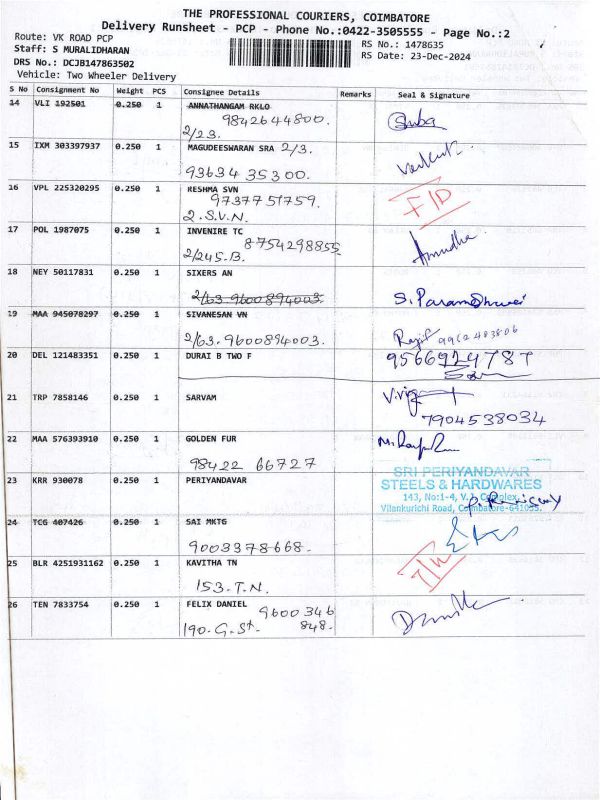 THE PROFESSIONAL COURIERS, COIMBATORE
Delivery Runsheet - PCP - Phone No.:0422-3505555 - Page No.:2
Route: VK ROAD PCP
Staff: S MURALIDHARAN
DRS No.: DCJB147863502
Vehicle: Two Wheeler Delivery
RS No.: 1478635
RS Date: 23-Dec-2024
S No Consignment No Weight PCS Consignee Details Remarks Seal & Signature
14 VLI 192501 0.250 1 ANNATHANGAM RKLO
9842644800.
2/23.
Suba
15 IXM 303397937 0.250 1 MAGUDEESWARAN SRA 2/3.
93634 35300.
16 VPL 225320295 0.250 1 RESHMA SVN
9737751759.
2.S.V.N.
17 POL 1987075 0.250 1 INVENIRE TC
8754298855
2/245.B.
Anudha
18 NEY 50117831 0.250 1 SIXERS AN
2/63-9600894003.
19 MAA 945078297 0.250 1 SIVANESAN VN
2/63.9600894003.
20 DEL 121483351 0.250 1 DURAI B TWO F
21 TRP 7858146 0.250 1 SARVAM
7904538034
22 MAA 576393910 0.250 1 GOLDEN FUR
98422 66727
23 KRR 930078 0.250 1 PERIYANDAVAR
SRI PERIYANDAVAR
STEELS & HARDWARES
143, No:1-4, V. Complex,
Vilankurichi Road, Coimbatore-641035.
24 TCG 407426 0.250 1 SAI MKTG
9003378668.
25 BLR 4251931162 0.250 1 KAVITHA TN
153.T.N.
26 TEN 7833754 0.250 1 FELIX DANIEL
9600346
190. G. St. 848.